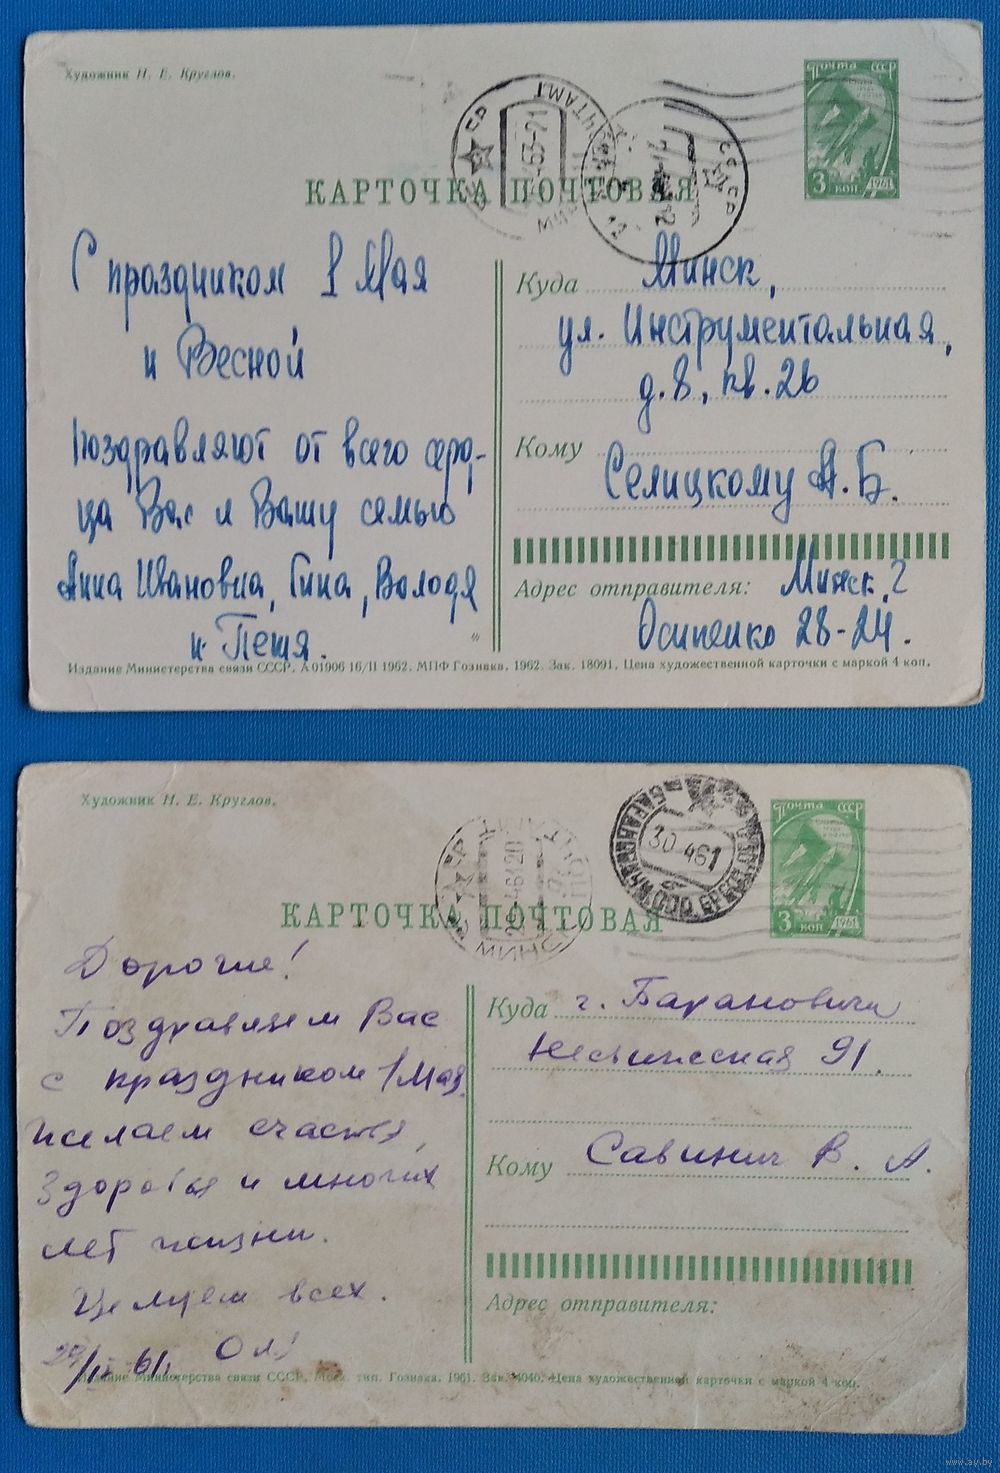 Художник Н. Е. Круглов.
Почта СССР
3 коп. 1961
КАРТОЧКА ПОЧТОВАЯ
С праздником 1 Мая
и Весной
Поздравляют от всего серд-
ца Вас и Вашу семью
Анна Ивановна, Гина, Володя
и Петя.
Куда Минск,
ул. Инструментальная,
д. 8, кв. 26
Кому Селицкому А. Б.
Адрес отправителя: Минск, 2
Осипенко 28-24.
Издание Министерства связи СССР. А 01906 16/II 1962. МПФ Гознака. 1962. Зак. 18091. Цена художественной карточки с маркой 4 коп.
Художник Н. Е. Круглов.
Почта СССР
3 коп. 1961
30 4 61
МИНСК
КАРТОЧКА ПОЧТОВАЯ
Дорогие!
Поздравляем Вас
с праздником 1 Мая.
Желаем счастья,
здоровья и многих
лет жизни.
Целуем всех.
61
Куда г. Барановичи
91.
Кому Савинич В. А.
Адрес отправителя:
Издание Министерства связи СССР. Моск. тип. Гознака. 1961. Зак. 4040. Цена художественной карточки с маркой 4 коп.
www.ay.by